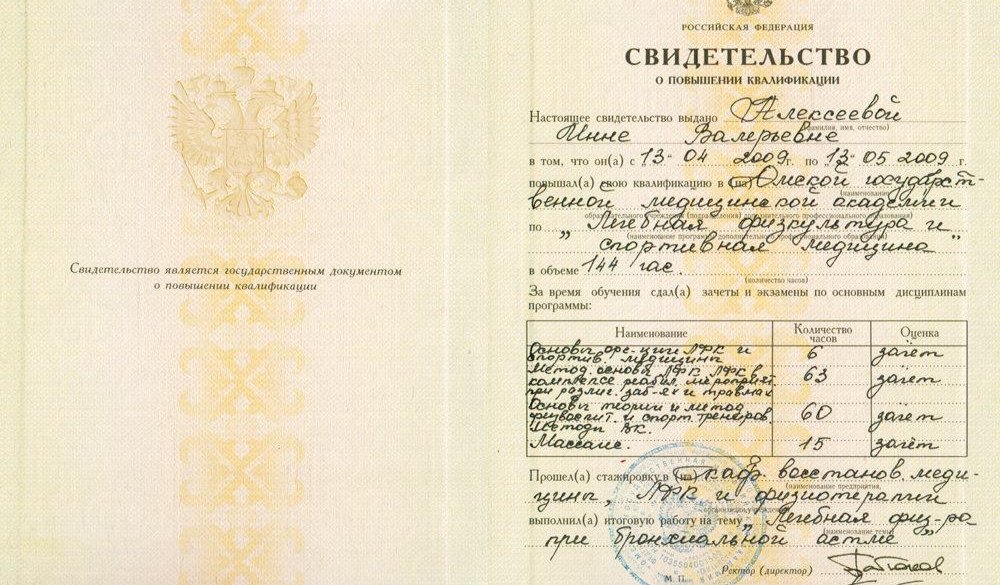 Свидетельство является государственным документом
о повышении квалификации
РОССИЙСКАЯ ФЕДЕРАЦИЯ
СВИДЕТЕЛЬСТВО
О ПОВЫШЕНИИ КВАЛИФИКАЦИИ
Настоящее свидетельство выдано Алексеевой
(фамилия, имя, отчество)
Инне Валерьевне
в том, что он(а) с 13-04 2009г. по 13-05 2009 г.
повышал(а) свою квалификацию в (на) Омской государст-
(наименование
венной медицинской академии
образовательного учреждения (подразделения) дополнительного профессионального образования)
по „Лечебная физкультура и
(наименование программы дополнительного профессионального образования)
спортивная медицина"
в объеме 144 час.
(количество часов)
За время обучения сдал(а) зачеты и экзамены по основным дисциплинам
программы:
Наименование Количество часов Оценка
Основы орг-ции ЛФК и
спортив. медицины 6 зачет
Метод. основы ЛФК. ЛФК в
комплексе реабил. мероприят. 63 зачет
при различ. заб-ях и травмах
Основы теории и метод.
физвоспит. и спорт. трениров. 60 зачет
Методы ВК.
Массаж. 15 зачет
Прошел(а) стажировку в (на) каф. восстанов. меди-
(наименование предприятия,
цины, ЛФК и физиотерапии
организации, учреждения)
выполнил(а) итоговую работу на тему „Лечебная физ-ра
(наименование темы)
при бронхиальной астме"
М. П. Ректор (директор)